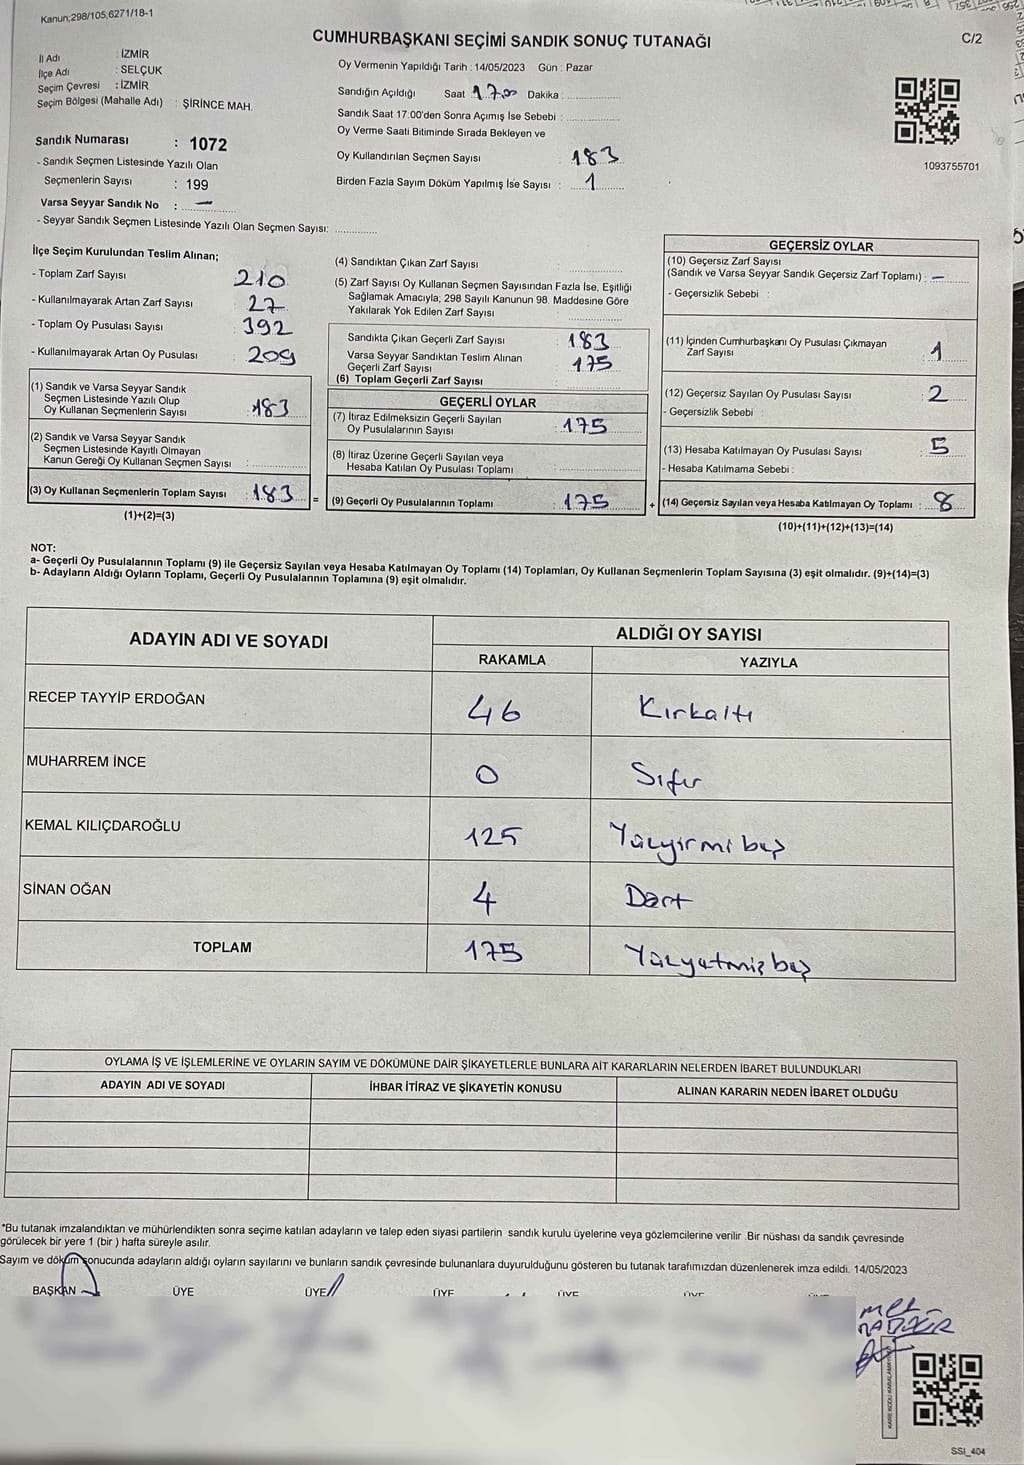 Kanun;298/105;6271/18-1
CUMHURBAŞKANI SEÇİMİ SANDIK SONUÇ TUTANAĞI
C/2
İl Adı : İZMİR
İlçe Adı : SELÇUK
Seçim Çevresi : İZMİR
Seçim Bölgesi (Mahalle Adı) : ŞİRİNCE MAH.
Sandık Numarası : 1072
- Sandık Seçmen Listesinde Yazılı Olan
Seçmenlerin Sayısı : 199
Varsa Seyyar Sandık No : —
- Seyyar Sandık Seçmen Listesinde Yazılı Olan Seçmen Sayısı: ..............
Oy Vermenin Yapıldığı Tarih : 14/05/2023 Gün : Pazar
Sandığın Açıldığı Saat 17.00 Dakika : ..............
Sandık Saat 17.00'den Sonra Açımış İse Sebebi : ..............
Oy Verme Saati Bitiminde Sırada Bekleyen ve
Oy Kullandırılan Seçmen Sayısı : 183
Birden Fazla Sayım Döküm Yapılmış İse Sayısı : 1
1093755701
İlçe Seçim Kurulundan Teslim Alınan;
- Toplam Zarf Sayısı : 210
- Kullanılmayarak Artan Zarf Sayısı : 27
- Toplam Oy Pusulası Sayısı : 392
- Kullanılmayarak Artan Oy Pusulası : 209
(1) Sandık ve Varsa Seyyar Sandık
Seçmen Listesinde Yazılı Olup
Oy Kullanan Seçmenlerin Sayısı : 183
(2) Sandık ve Varsa Seyyar Sandık
Seçmen Listesinde Kayıtlı Olmayan
Kanun Gereği Oy Kullanan Seçmen Sayısı : ..............
(3) Oy Kullanan Seçmenlerin Toplam Sayısı : 183
(1)+(2)=(3)
=
(4) Sandıktan Çıkan Zarf Sayısı : ..............
(5) Zarf Sayısı Oy Kullanan Seçmen Sayısından Fazla İse, Eşitliği
Sağlamak Amacıyla; 298 Sayılı Kanunun 98. Maddesine Göre
Yakılarak Yok Edilen Zarf Sayısı : ..............
Sandıkta Çıkan Geçerli Zarf Sayısı : 183
Varsa Seyyar Sandıktan Teslim Alınan
Geçerli Zarf Sayısı : 175
(6) Toplam Geçerli Zarf Sayısı : ..............
GEÇERLİ OYLAR
(7) İtiraz Edilmeksizin Geçerli Sayılan
Oy Pusulalarının Sayısı : 175
(8) İtiraz Üzerine Geçerli Sayılan veya
Hesaba Katılan Oy Pusulası Toplamı : ..............
(9) Geçerli Oy Pusulalarının Toplamı : 175
+
GEÇERSİZ OYLAR
(10) Geçersiz Zarf Sayısı
(Sandık ve Varsa Seyyar Sandık Geçersiz Zarf Toplamı) : —
- Geçersizlik Sebebi :
(11) İçinden Cumhurbaşkanı Oy Pusulası Çıkmayan
Zarf Sayısı : 1
(12) Geçersiz Sayılan Oy Pusulası Sayısı : 2
- Geçersizlik Sebebi :
(13) Hesaba Katılmayan Oy Pusulası Sayısı : 5
- Hesaba Katılmama Sebebi :
(14) Geçersiz Sayılan veya Hesaba Katılmayan Oy Toplamı : 8
(10)+(11)+(12)+(13)=(14)
NOT:
a- Geçerli Oy Pusulalarının Toplamı (9) ile Geçersiz Sayılan veya Hesaba Katılmayan Oy Toplamı (14) Toplamları, Oy Kullanan Seçmenlerin Toplam Sayısına (3) eşit olmalıdır. (9)+(14)=(3)
b- Adayların Aldığı Oyların Toplamı, Geçerli Oy Pusulalarının Toplamına (9) eşit olmalıdır.
ADAYIN ADI VE SOYADI
ALDIĞI OY SAYISI
RAKAMLA YAZIYLA
RECEP TAYYİP ERDOĞAN 46 Kırkaltı
MUHARREM İNCE 0 Sıfır
KEMAL KILIÇDAROĞLU 125 Yüzyirmi beş
SİNAN OĞAN 4 Dört
TOPLAM 175 Yüzyetmiş beş
OYLAMA İŞ VE İŞLEMLERİNE VE OYLARIN SAYIM VE DÖKÜMÜNE DAİR ŞİKAYETLERLE BUNLARA AİT KARARLARIN NELERDEN İBARET BULUNDUKLARI
ADAYIN ADI VE SOYADI İHBAR İTİRAZ VE ŞİKAYETİN KONUSU ALINAN KARARIN NEDEN İBARET OLDUĞU
*Bu tutanak imzalandıktan ve mühürlendikten sonra seçime katılan adayların ve talep eden siyasi partilerin sandık kurulu üyelerine veya gözlemcilerine verilir .Bir nüshası da sandık çevresinde
görülecek bir yere 1 (bir ) hafta süreyle asılır.
Sayım ve döküm sonucunda adayların aldığı oyların sayılarını ve bunların sandık çevresinde bulunanlara duyurulduğunu gösteren bu tutanak tarafımızdan düzenlenerek imza edildi. 14/05/2023
BAŞKAN ÜYE ÜYE ÜYE ÜYE ÜYE
SSI_404